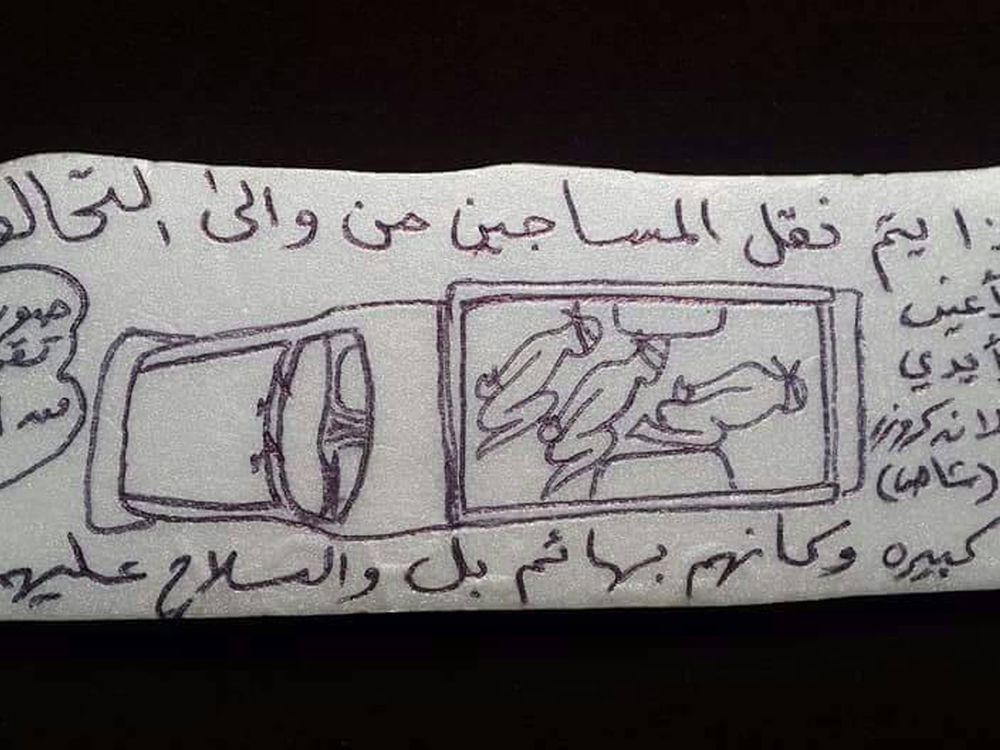 ذا يتم نقل المساجين من والى التحالف
أعين
أيدي
لاندكروزر
(شاص)
صور
كبيره وكأنهم بهائم بل والسلاح عليهم